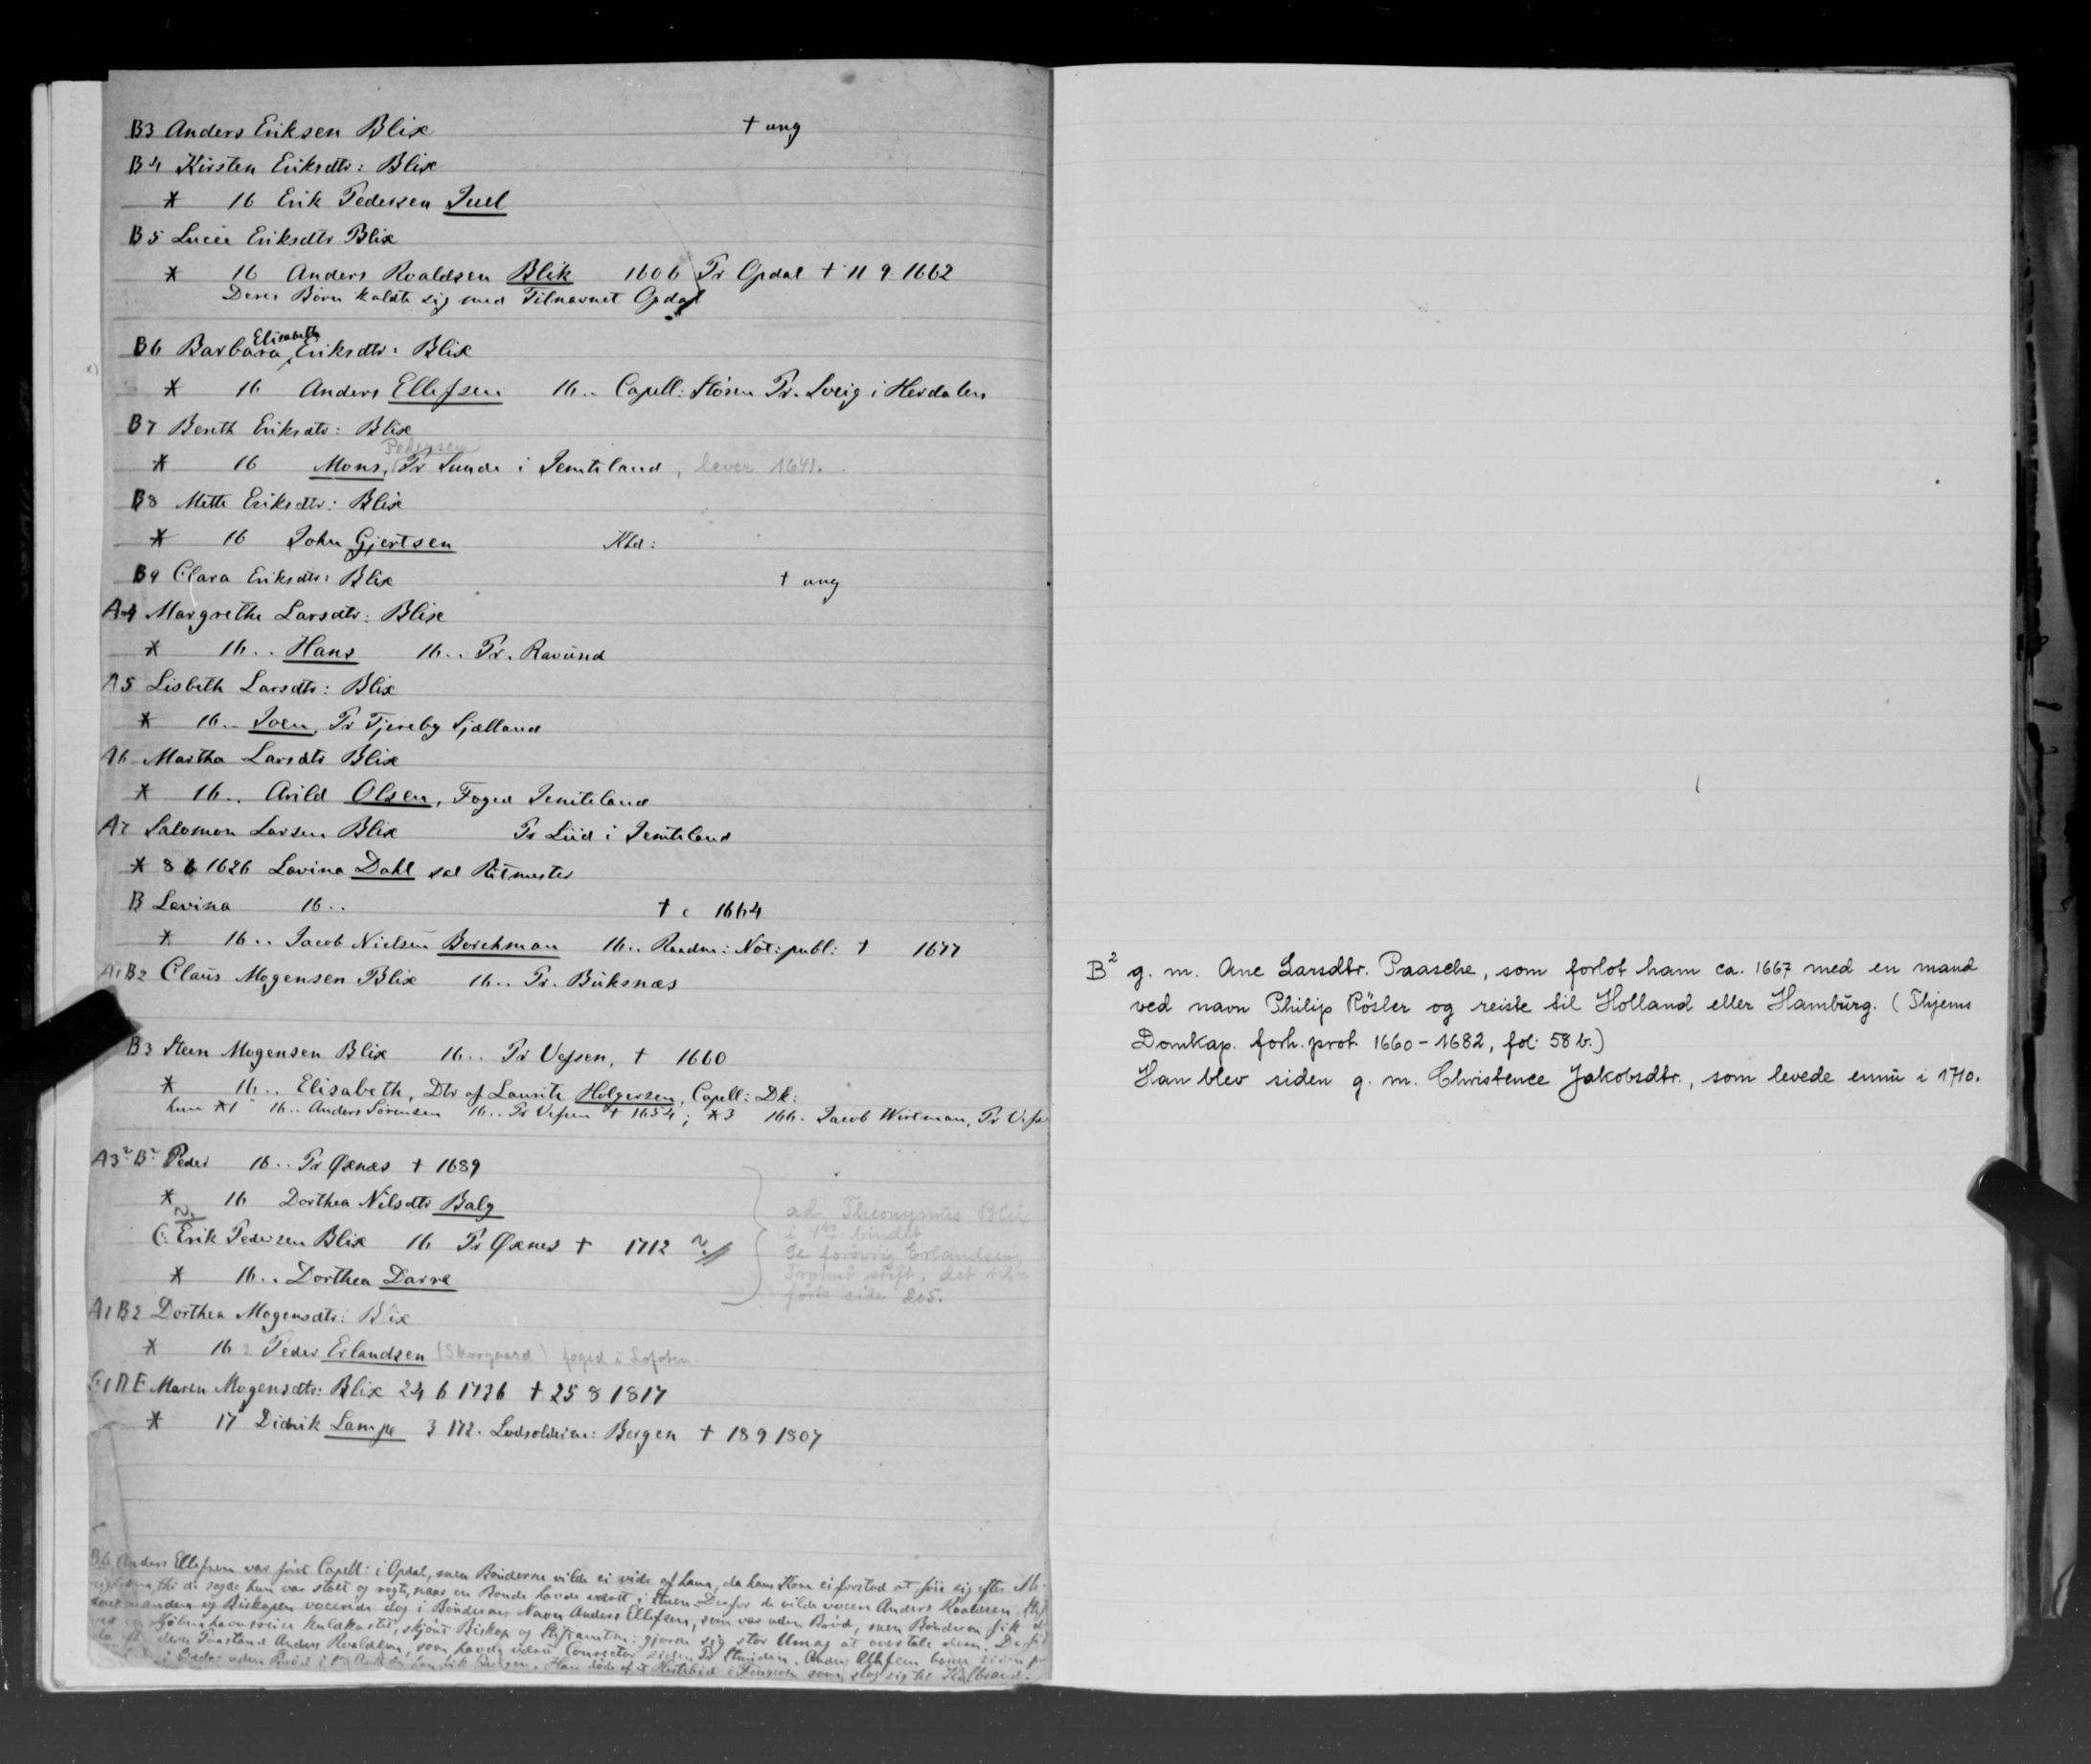 B3 Anders Eriksen Blix † ung
B4 Kirsten Eriksdtr: Blix
* 16 Erik Pedersen Juel
B5 Lucie Eriksdtr Blix
* 16 Anders Roaldsen Blik 1606 Pr Opdal † 11 9 1662
Deres Børn kaldte sig med Tilnavnet Opdal
B6 Barbara Elisabeth Eriksdtr: Blix
x)
* 16 Anders Ellefsen 16.. Capell: Støren Pr. Sveig i Herdalen
B7 Bereth Eriksdtr: Blix
* 16 Mons Pedersen, Pr Sunde i Jemteland, lever 1641.
B8 Mette Eriksdtr: Blix
* 16 John Gjertsen Khd:
B9 Clara Eriksdtr: Blix † ung
A4 Margrethe Larsdtr: Blix
* 16.. Hans 16.. Pr. Ravund
A5 Lisbeth Larsdtr: Blix
* 16.. Joen, Pr Tjereby Sjælland
A6 Martha Larsdtr Blix
* 16.. Arild Olsen, Foged Jemteland
A7 Salomon Larsen Blix Pr Liid i Jemteland
* 8 6 1626 Lavina Dahl sal Ritmester
B Lavina 16.. † c 1664
* 16.. Jacob Nielsen Borchman 16.. Raadm: Not: publ: † 1677
A1 B2 Claus Mogensen Blix 16.. Pr. Buksnæs
B3 Steen Mogensen Blix 16.. Pr Vefsen, † 1660
* 16.. Elisabeth, Dtr af Laurits Holgersen, Capell: Dk:
hun *1 16.. Anders Sörensen 16.. Pr Vefsen † 1654; *3 166. Jacob Wirtman, Pr Vefs
A3? B? Peder 16.. Pr Øxnes † 1689
* 16 Dorthea Nilsdtr Balg
C. Erik Pedersen Blix 16 Pr Øxnes † 1712 ?
* 16.. Dorthea Darre
ad Theonymus Blix
i 4de bindet
Se forøvrig Erlandsen,
Tromsø stift, det
side 205.
A1 B2 Dorthea Mogensdtr: Blix
* 16 2 Peder Erlandsen (Skovgaard) foged i Lofoten.
Maren Mogensdtr: Blix 24 6 1736 † 25 8 1817
* 17 Didrik Lampe 3 172. Lodsolderm: Bergen † 18 9 1807
B6 Anders Ellefsen var først Capell: i Opdal, men Bönderne vilde ei vide af ham, da hans Kone ei forstod at föie sig efter
thi de sagde hun var stolt og naar en Bonde havde været i Stuen. Derfor de vilde vocere Anders Roaldsen.
og Biskopen vocerede dog i Böndernes Navn Anders Ellefsen, som var uden Bröd, men Bönderne fik
Kjöbenhavnsreise kuldkastet, skjönt Biskop og Stiftamtm: gjorde sig stor Umag at overtale dem. De
deres Paastand Anders Roaldsen, som havde været Conrector siden Pr. Anders Ellefsen
i uden Bröd Han döde af i Fingeren som slog sig til Koldbrand.
B² g. m. Ane Larsdtr. Paasche, som forlot ham ca. 1667 med en mand
ved navn Philip Rösler og reiste til Holland eller Hamburg. (Thjems
Domkap. forh. prot. 1660-1682, fol. 58 b.)
Han blev siden g. m. Christence Jakobsdtr., som levede ennu i 1710.